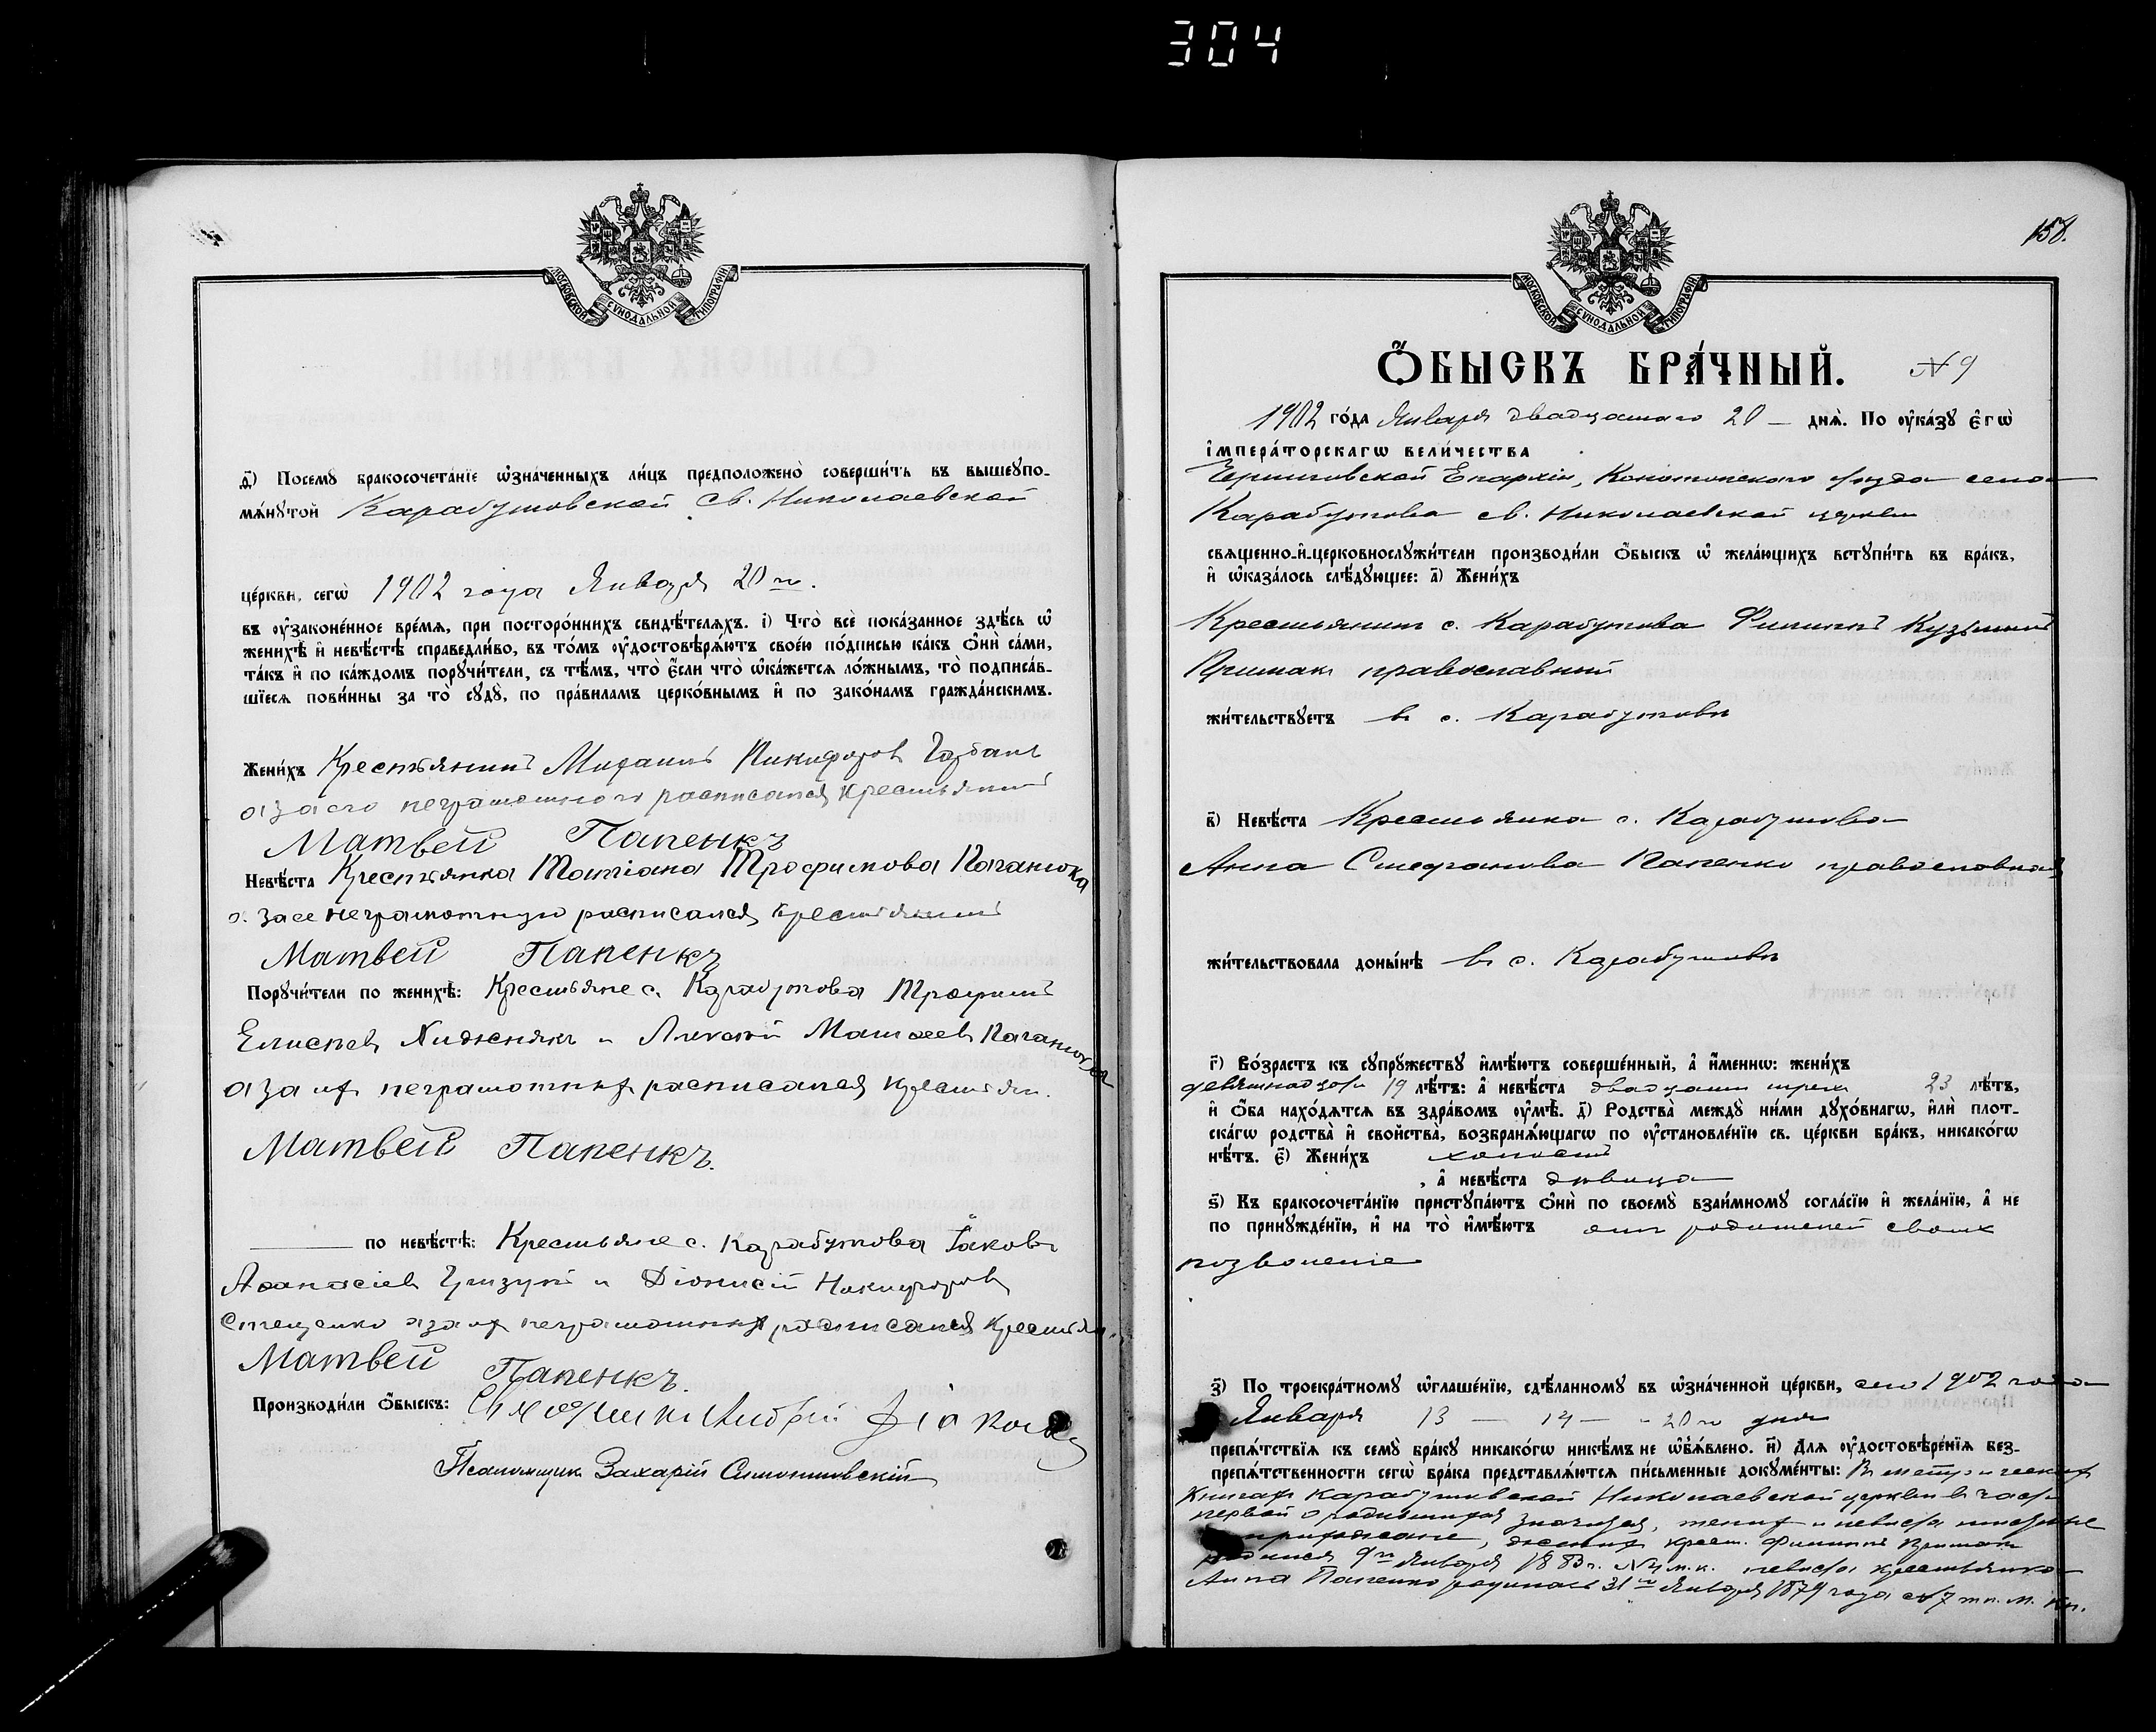 304
МОСКОВСКОЙ СѴНОДАЛЬНОЙ ТИПОГРАФІИ
д҃) Посемꙋ бракосочета́нїе ѡ҆зна́ченныхъ ли́цъ предположено̀ соверши́ть въ вышеупо-
мѧ́нꙋтой Карабутовской св. Николаевской
це́ркви, сегѡ̀ 1902 года Января 20 го.
въ ᲂу҆зако́ненное вре́мѧ, при посторо́ннихъ свидѣ́телѧхъ. і҃) Что̀ всѐ пока́занное здѣ́сь ѡ҆
женихѣ̀ и҆ невѣ́стѣ справедли́во, въ то́мъ ᲂу҆достовѣрѧ́ютъ свое́ю по́дписью ка́къ ѻ҆нѝ са́ми,
та́къ и҆ по ка́ждомъ порꙋчи́тели, съ тѣ́мъ, что̀ є҆́сли что̀ ѡ҆ка́жетсѧ ло́жнымъ, то̀ подписа́в-
шїесѧ пови́нны за то̀ сꙋдꙋ̀, по пра́виламъ церко́внымъ и҆ по зако́намъ гражда́нскимъ.
Жени́хъ Крестьянинъ Никифоров
а за его неграмотного расписался крестьянинъ
Матвей Папенкъ
Невѣ́ста Крестьянка Татіана Трофимова
а за ее неграмотную расписался крестьянинъ
Матвей Папенкъ
Порꙋчи́тели по женихѣ̀: Крестьяне с. Карабутова Трофимъ
Елисеев и Алексей Матвеев
а за их неграмотных расписался крестьян.
Матвей Папенкъ.
по невѣ́стѣ: Крестьяне с. Карабутова Іаков
Аѳанасіев и Діонисій Никифоров
а за их неграмотных расписался крестьян.
Матвей Папенкъ.
Производи́ли ѻ҆́быскъ:
Псаломщик Захарій
158.
МОСКОВСКОЙ СѴНОДАЛЬНОЙ ТИПОГРАФІИ
Ѻ҆́БЫСКЪ БРА́ЧНЫЙ. № 9
1902 го́да Января двадцатаго 20 — днѧ̀. По ᲂу҆ка́зꙋ є҆гѡ̀
і҆мпера́торскагѡ вели́чества
Черниговской Епархіи, Конотопского уезда села
Карабутова св. Николаевской церкви
свѧще́нно-и҆-церковнослꙋжи́тели производи́ли ѻ҆́быскъ ѡ҆ жела́ющихъ встꙋпи́ть въ бра́къ,
и҆ ѡ҆каза́лось слѣ́дꙋющее: а҃) Жени́хъ
Крестьянин с. Карабутова Филиппъ Кузьминъ
Примак православный
жи́тельствꙋетъ в с. Карабутове
в҃) Невѣ́ста Крестьянка с. Карабутова
Анна Стефанова Папенко православная
жи́тельствовала доны́нѣ в с. Карабутове
г҃) Во́зрастъ къ сꙋпрꙋ́жествꙋ и҆мѣ́ютъ соверше́нный, а҆ и҆́менно: жени́хъ
девятнадцать 19 лѣ́тъ: а҆ невѣ́ста двадцати трех 23 лѣ́тъ,
и҆ ѻ҆́ба нахо́дѧтсѧ въ здра́вомъ ᲂу҆мѣ̀. д҃) Родства̀ междꙋ̀ ни́ми дꙋхо́внагѡ, и҆лѝ плот-
ска́гѡ родства̀ и҆ сво́йства, возбранѧ́ющагѡ по ᲂу҆становле́нїю св. це́ркви бра́къ, никако́гѡ
нѣ́тъ. є҃) Жени́хъ холостъ
, а҆ невѣ́ста девица
ѕ҃) Къ бракосочета́нїю пристꙋпа́ютъ ѻ҆нѝ по своемꙋ̀ взаи́мномꙋ согла́сїю и҆ жела́нїю, а҆ не
по принꙋжде́нїю, и҆ на то̀ и҆мѣ́ютъ от родителей своих
позволение
з҃) По троекра́тномꙋ ѡ҆глаше́нїю, сдѣ́ланномꙋ въ ѡ҆зна́ченной це́ркви, сего 1902 года
Января 13 — 14 — и 20 го дня
препѧ́тствїѧ къ семꙋ̀ бра́кꙋ никако́гѡ никѣ́мъ не ѡ҆б̾ѧ́влено. и҃) Длѧ ᲂу҆достовѣре́нїѧ без-
препѧ́тственности сегѡ̀ бра́ка представлѧ́ютсѧ пи́сьменные докꙋме́нты: В метрических
книгах Карабутовской Николаевской церкви в части
первой о родившихся значится, жених и невеста
прихожане, жених крест. Филиппъ Примак
родился 9го Января 1883 г. № 4 м. к. невеста крестьянка
Анна Папенко родилась 31 го Января 1879 года № 7 м. кн.